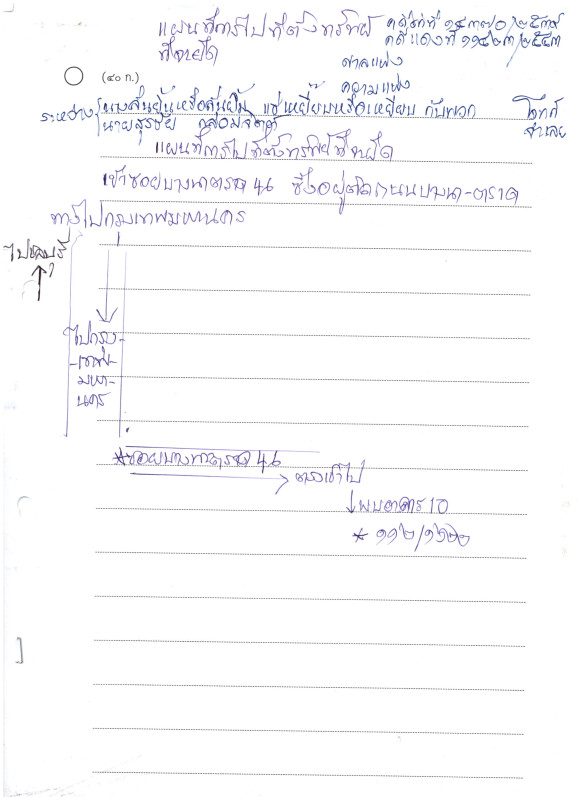 แผนที่การไปที่ตั้งทรัพย์
ที่จะยึด
คดีดำที่ ๑๔๓๗๐/๒๕๓๙
คดีแดงที่ ๑๑๔๒๓/๒๕๔๓
ศาลแพ่ง
ความแพ่ง
(๔๐ ก.)
ระหว่าง นางลั่นยิ้มหรือลั่นยิ้ม แซ่เหยี่ยบหรือเหยียบ กับพวก โจทก์
นายสุรชัย จำเลย
แผนที่การไปที่ตั้งทรัพย์ที่จะยึด
เข้าซอยบางนาตราด 46 ซึ่งอยู่ติดถนนบางนา-ตราด
ทางไปกรุงเทพมหานคร
ไปชลบุรี
ไปกรุง-
-เทพ-
มหา-
นคร
*ซอยบางนาตราด 46
ตรงเข้าไป
พบอาคาร 10
* ๑๑๒/๑๖๒๐